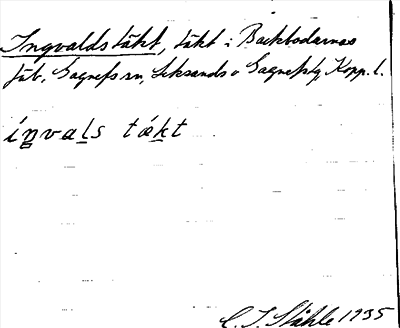 Ingvaldstäkt, täkt i Backbodarnas
fäb. Gagnefs sn, Leksands o Gagnefs tg, Kopp. l.
íŋvaḷs tǽkt
C. I. Ståhle 1935